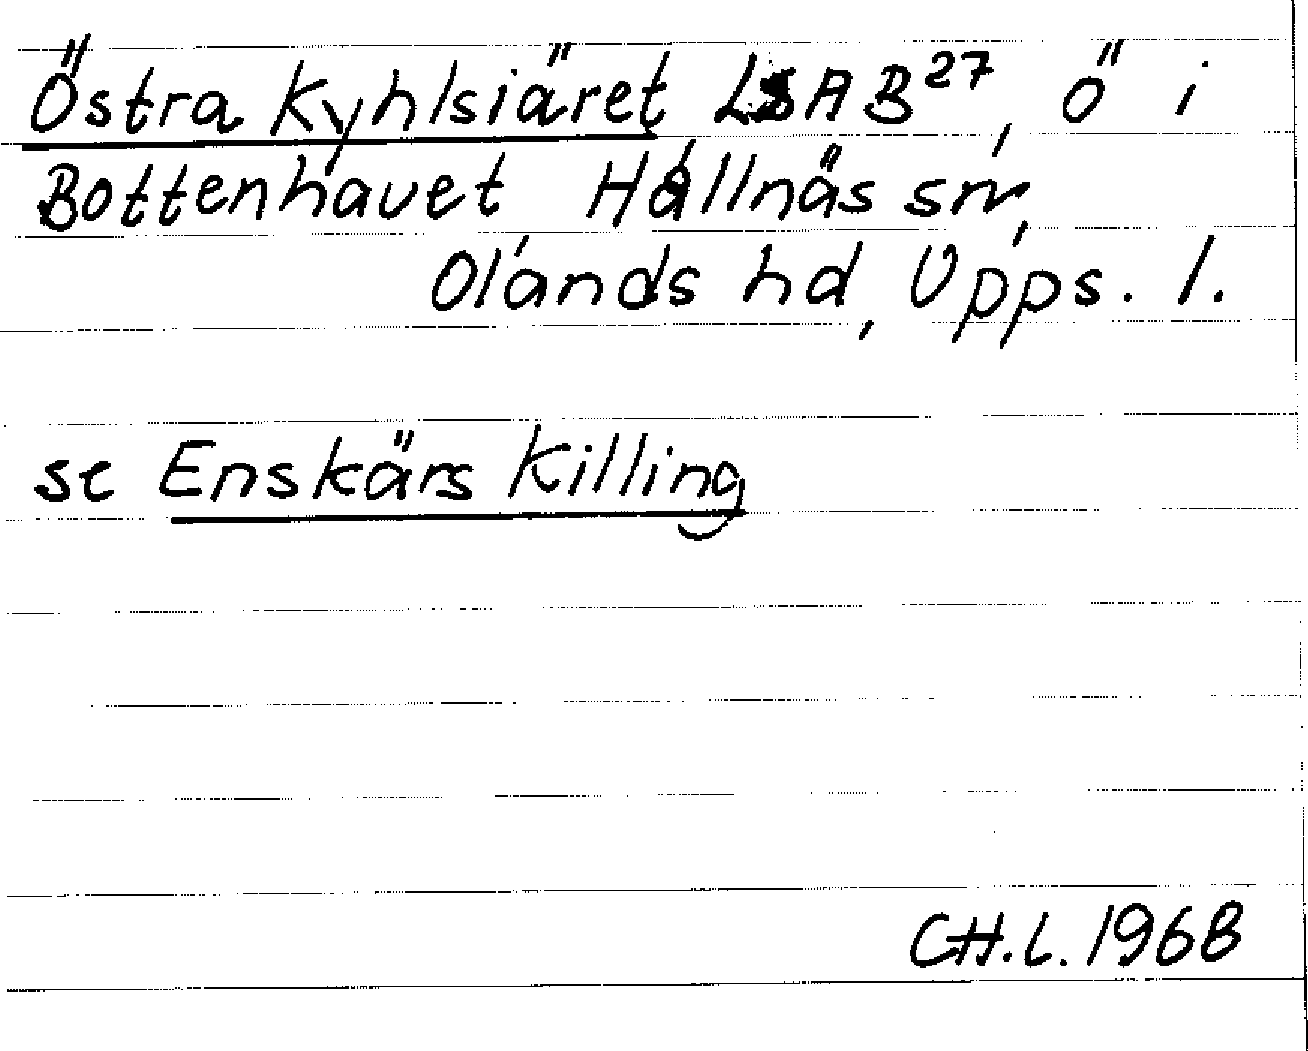 Östra Kyhlsiäret LSA B27, ö i
Bottenhavet Hållnäs sn,
Olands hd, Upps. l.
se Enskärs Killing
CH.L. 1968